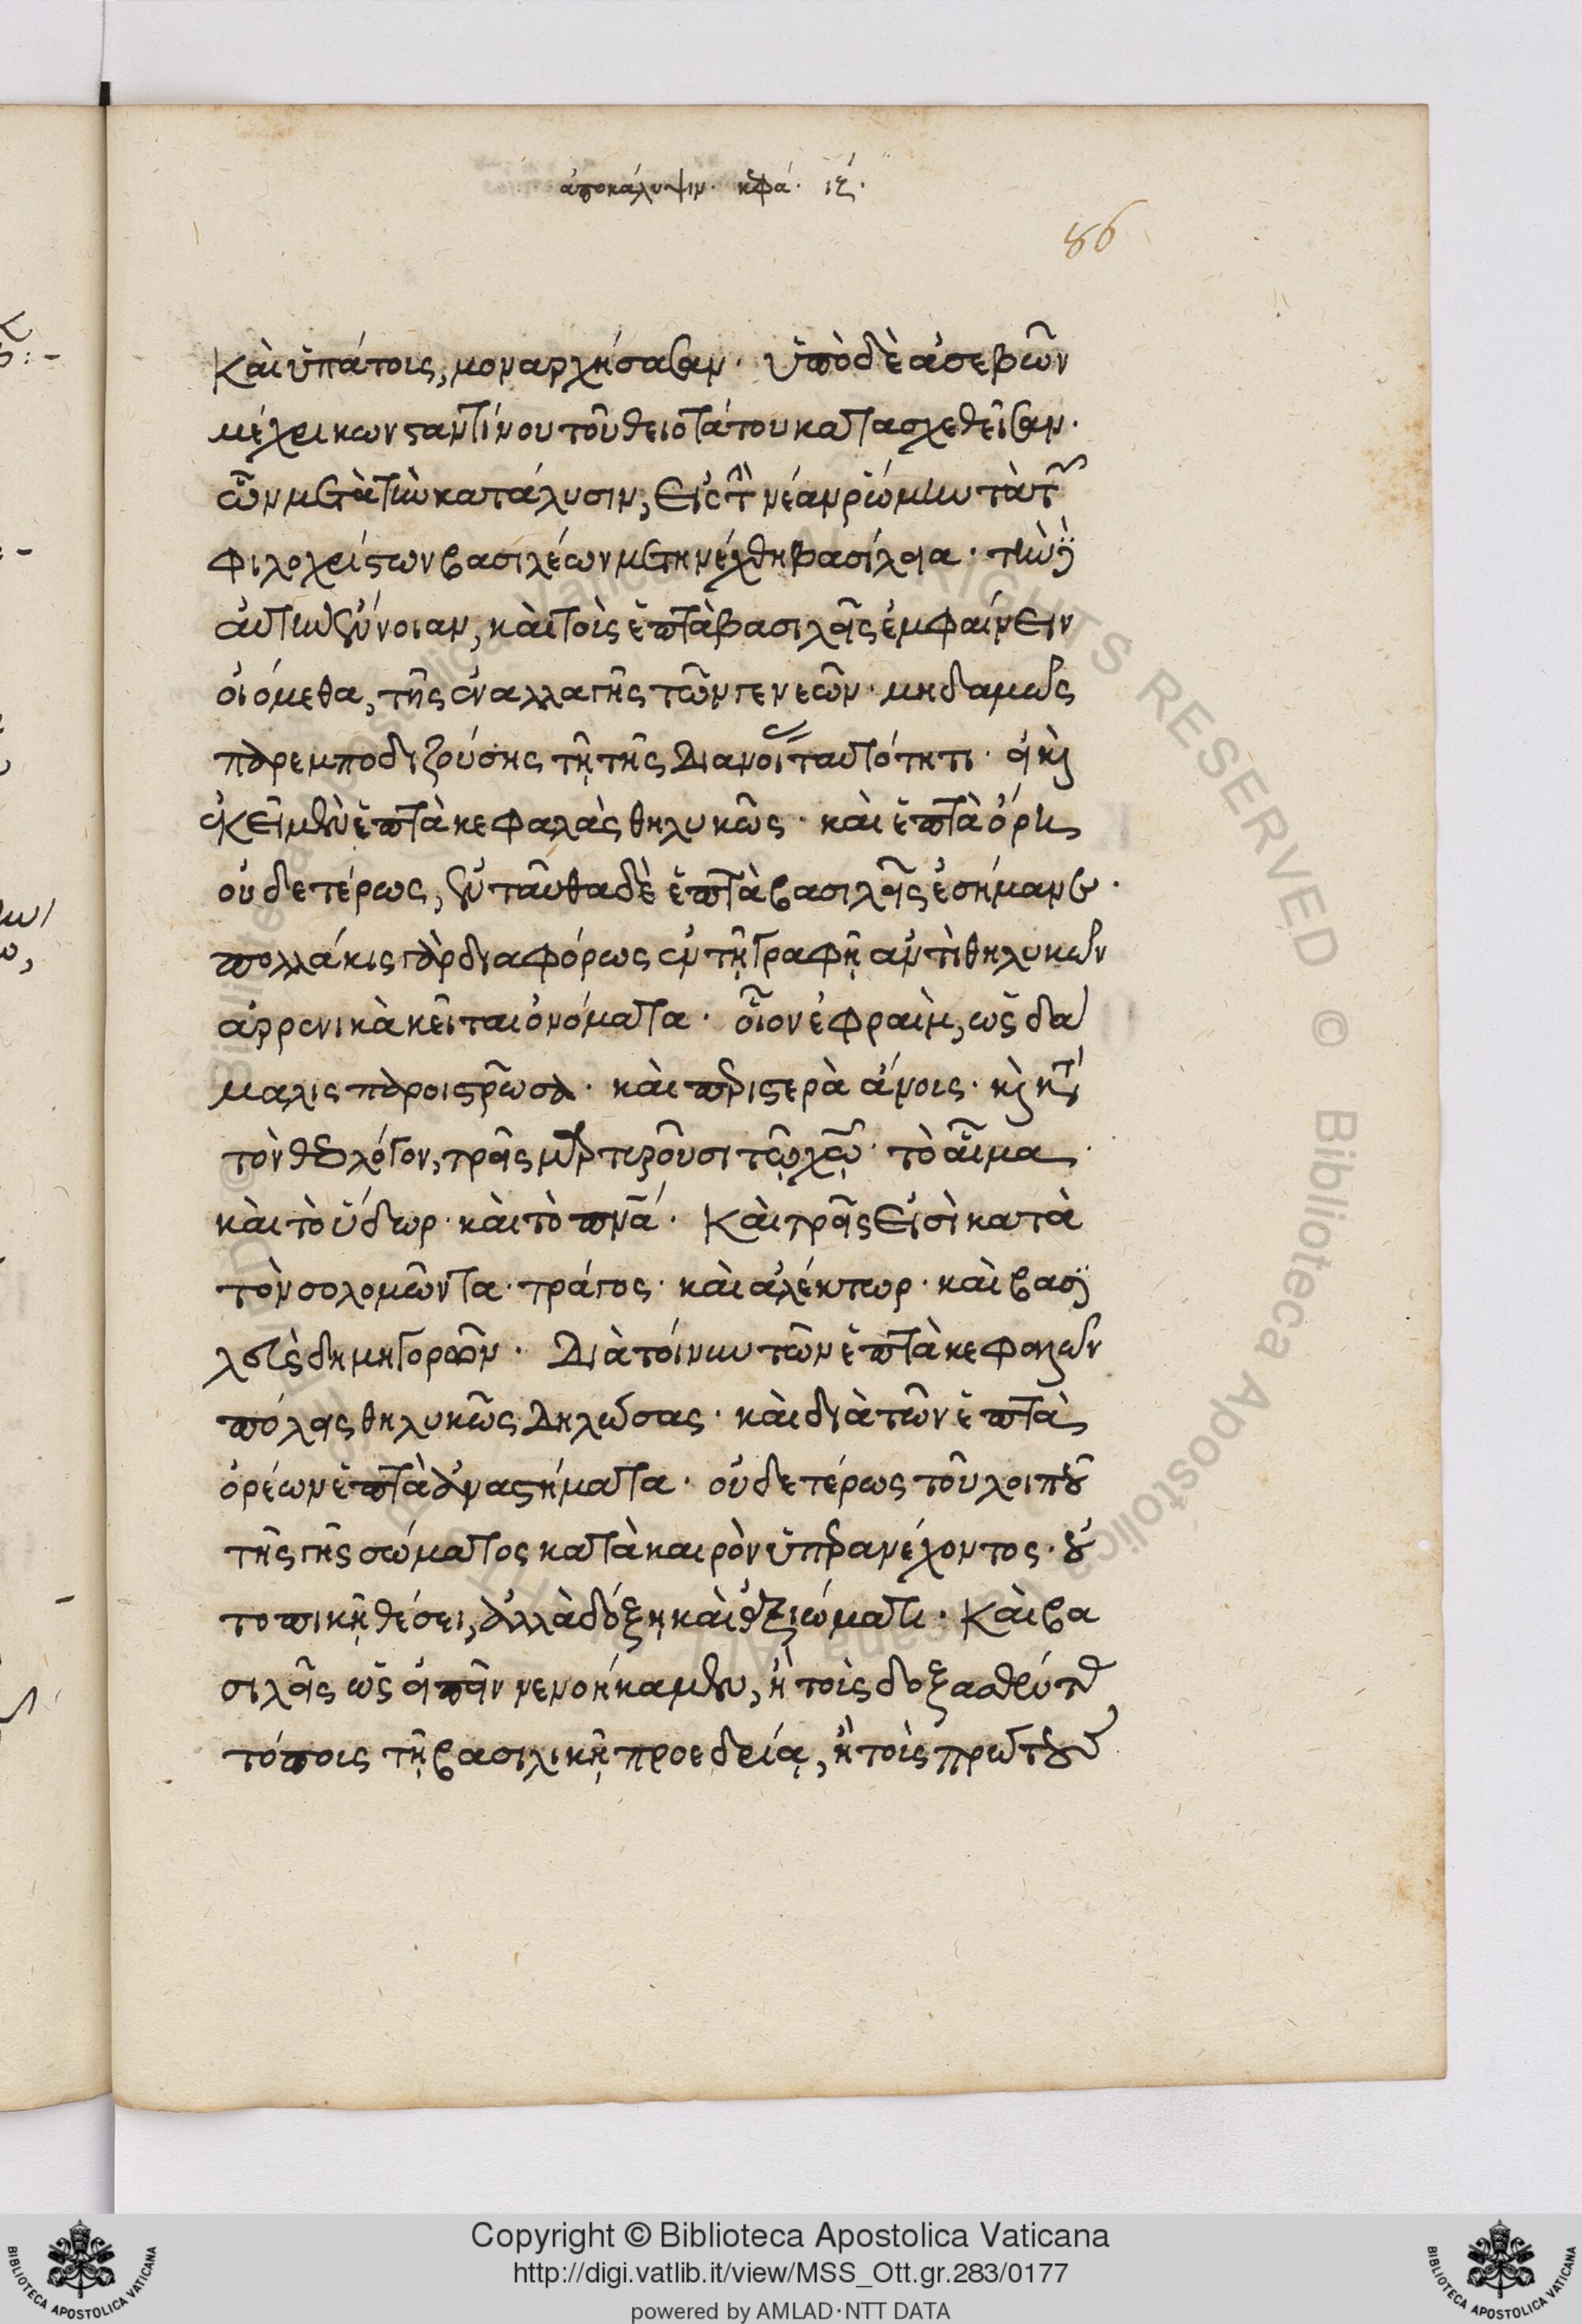 ἀποκάλυψιν· κεφά· ιζ´·
86
Καὶ ὑπάτοις, μοναρχήσασαν· ὑπὸ δὲ ἀσεβῶν
μέχρι κωνσταντίνου τοῦ θειοτάτου κατασχεθεῖσαν·
ὧν μετὰ τὴν κατάλυσιν, εἰς τὴν νέαν ῥώμην τὰ τῶν
φιλοχρίστων βασιλέων μετηνέχθη βασίλεια· τὴν δὲ
αὐτὴν ἔννοιαν, καὶ τοὺς ἑπτὰ βασιλεῖς ἐμφαίνειν
οἰόμεθα, τῆς ἐναλλαγῆς τῶν γενεῶν· μηδαμῶς
παρεμποδιζούσης τῇ τῆς διανοίας ταυτότητι· εἰ καὶ
ἐκεῖ μὲν ἑπτὰ κεφαλὰς θηλυκῶς· καὶ ἑπτὰ ὄρη
οὐδετέρως, ἐνταῦθα δὲ ἑπτὰ βασιλεῖς ἐσήμανε·
πολλάκις γὰρ διαφόρως ἐν τῇ γραφῇ ἀντὶ θηλυκῶν
ἀρρενικὰ κεῖται ὀνόματα· οἷον ἐφραὶμ, ὡς δά
μαλις παροιστρῶσα· καὶ περιστερὰ ἄνοις· καὶ κατὰ
τὸν θεολόγον, τρεῖς μαρτυροῦσι τῷ χῷ· τὸ αἷμα
καὶ τὸ ὕδωρ· καὶ τὸ πνᾶ· Καὶ τρεῖς εἰσὶ κατὰ
τὸν σολομῶντα· τράγος· καὶ ἀλέκτωρ· καὶ βασι
λεὺς δημηγορῶν· Διὰ τοίνυν τῶν ἑπτὰ κεφαλῶν
πόλεις θηλυκῶς δηλώσας· καὶ διὰ τῶν ἑπτὰ
ὀρέων ἑπτὰ ἀναστήματα· οὐδετέρως τοῦ λοιποῦ
τῆς γῆς σώματος κατὰ καιρὸν ὑπερανέχοντος· οὐ
τοπικῇ θέσει, ἀλλὰ δόξῃ καὶ ἀξιώματι· Καὶ βα
σιλεῖς ὡς εἰπεῖν νενοήκαμεν, ἢ τοὺς δοξασθέντας
τόποις τῇ βασιλικῇ προεδρίᾳ, ἢ τοὺς πρώτους
Copyright © Biblioteca Apostolica Vaticana
http://digi.vatlib.it/view/MSS_Ott.gr.283/0177
powered by AMLAD·NTT DATA